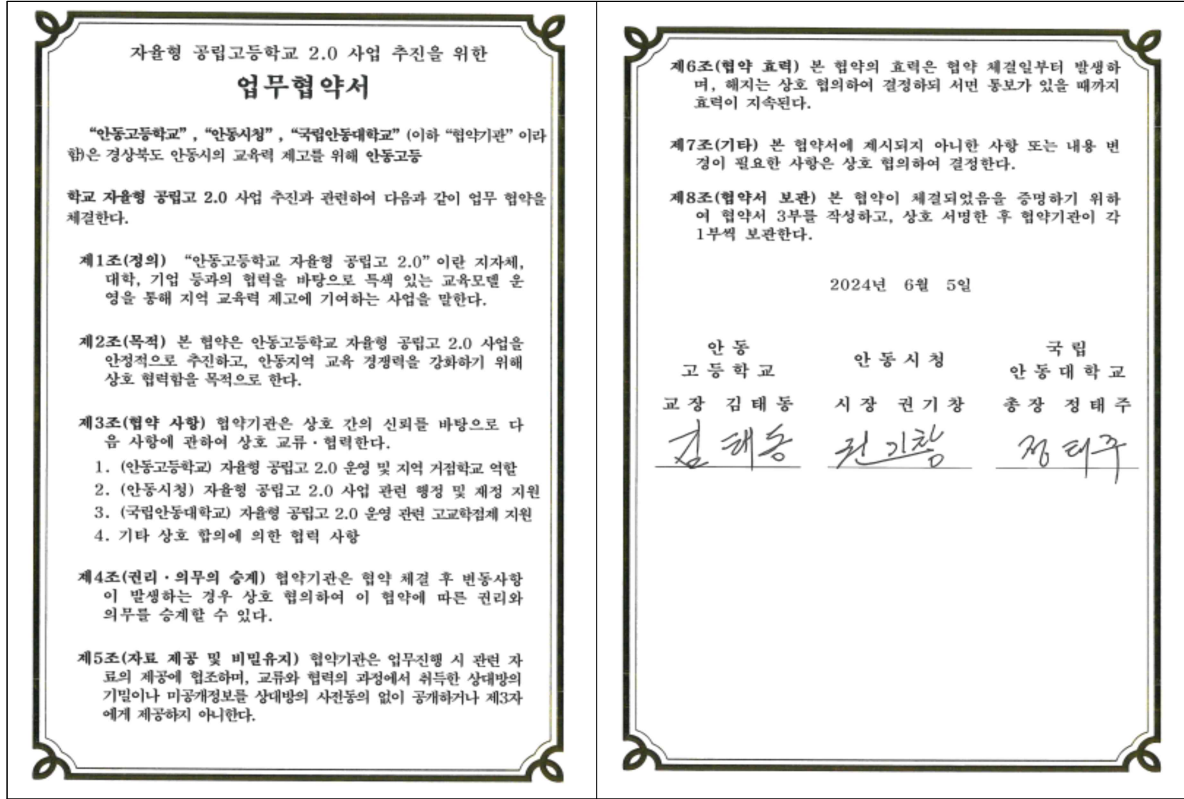 자율형 공립고등학교 2.0 사업 추진을 위한
업무협약서
“안동고등학교”, “안동시청”, “국립안동대학교” (이하 “협약기관” 이라
함)은 경상북도 안동시의 교육력 제고를 위해 안동고등
학교 자율형 공립고 2.0 사업 추진과 관련하여 다음과 같이 업무 협약을
체결한다.
제1조(정의) “안동고등학교 자율형 공립고 2.0” 이란 지자체,
대학, 기업 등과의 협력을 바탕으로 특색 있는 교육모델 운
영을 통해 지역 교육력 제고에 기여하는 사업을 말한다.
제2조(목적) 본 협약은 안동고등학교 자율형 공립고 2.0 사업을
안정적으로 추진하고, 안동지역 교육 경쟁력을 강화하기 위해
상호 협력함을 목적으로 한다.
제3조(협약 사항) 협약기관은 상호 간의 신뢰를 바탕으로 다
음 사항에 관하여 상호 교류·협력한다.
1. (안동고등학교) 자율형 공립고 2.0 운영 및 지역 거점학교 역할
2. (안동시청) 자율형 공립고 2.0 사업 관련 행정 및 재정 지원
3. (국립안동대학교) 자율형 공립고 2.0 운영 관련 고교학점제 지원
4. 기타 상호 합의에 의한 협력 사항
제4조(권리·의무의 승계) 협약기관은 협약 체결 후 변동사항
이 발생하는 경우 상호 협의하여 이 협약에 따른 권리와
의무를 승계할 수 있다.
제5조(자료 제공 및 비밀유지) 협약기관은 업무진행 시 관련 자
료의 제공에 협조하며, 교류와 협력의 과정에서 취득한 상대방의
기밀이나 미공개정보를 상대방의 사전동의 없이 공개하거나 제3자
에게 제공하지 아니한다.
제6조(협약 효력) 본 협약의 효력은 협약 체결일부터 발생하
며, 해지는 상호 협의하여 결정하되 서면 통보가 있을 때까지
효력이 지속된다.
제7조(기타) 본 협약서에 제시되지 아니한 사항 또는 내용 변
경이 필요한 사항은 상호 협의하여 결정한다.
제8조(협약서 보관) 본 협약이 체결되었음을 증명하기 위하
여 협약서 3부를 작성하고, 상호 서명한 후 협약기관이 각
1부씩 보관한다.
2024년 6월 5일
안동
고등학교
교장 김태동
김태동
안동시청
시장 권기창
권기창
국립
안동대학교
총장 정태주
정태주